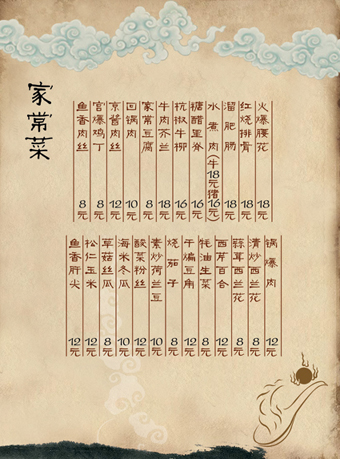 家常菜
鱼香肉丝 8元
宫爆鸡丁 8元
京酱肉丝 12元
回锅肉 10元
家常豆腐 8元
牛肉芥兰 18元
杭椒牛柳 16元
糖醋里脊 16元
水煮肉(牛18元猪16元)
溜肥肠 18元
红烧排骨 18元
火爆腰花 18元
鱼香肝尖 12元
松仁玉米 12元
草菇丝瓜 8元
海米冬瓜 10元
酸菜粉丝 12元
素炒荷兰豆 10元
烧茄子 8元
干煸豆角 12元
蚝油生菜 8元
西芹百合 12元
蒜茸西兰花 8元
清炒西兰花 8元
锅爆肉 12元